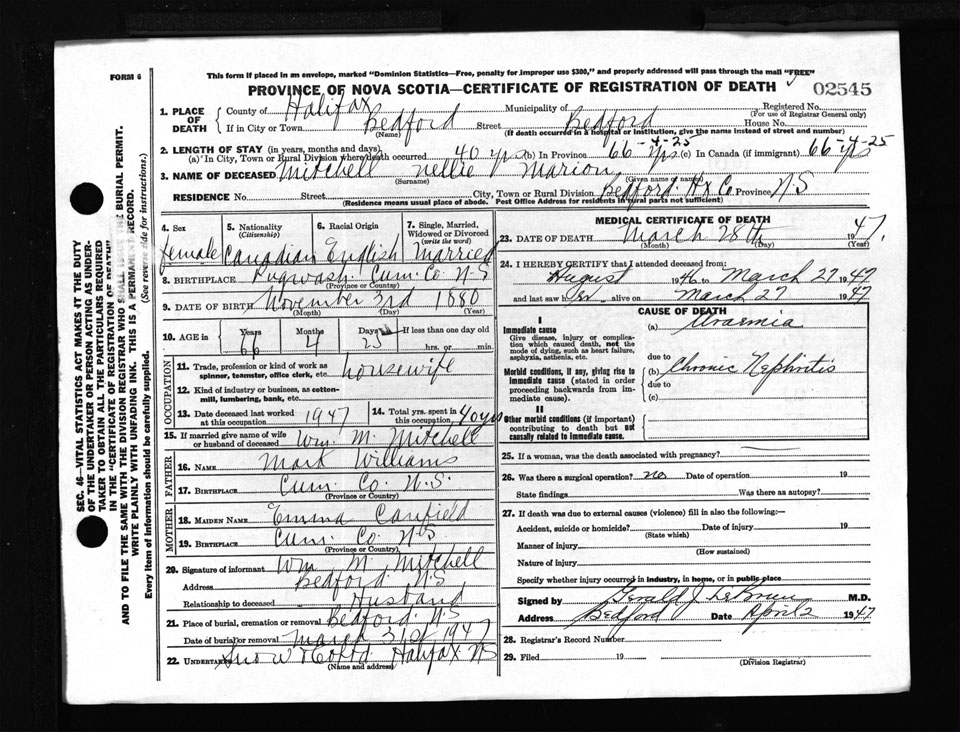 FORM 6
This form if placed in an envelope, marked "Dominion Statistics—Free, penalty for improper use $300," and properly addressed will pass through the mail "FREE"
PROVINCE OF NOVA SCOTIA—CERTIFICATE OF REGISTRATION OF DEATH
02545
1. PLACE OF DEATH
County of Halifax Municipality of Registered No.
(For use of Registrar General only)
If in City or Town Bedford Street Bedford House No.
(Name) (If death occurred in a hospital or institution, give the name instead of street and number)
2. LENGTH OF STAY (in years, months and days)
(a) In City, Town or Rural Division where death occurred 40 yrs (b) In Province 66 yrs-4-25 (c) In Canada (if immigrant) 66 yrs-4-25
3. NAME OF DECEASED Mitchell Nellie Marion
(Surname) (Given name or names)
RESIDENCE No. Street City, Town or Rural Division Bedford Hx Co. Province N.S
(Residence means usual place of abode. Post Office Address for residents in rural parts not sufficient)
4. Sex 5. Nationality (Citizenship) 6. Racial Origin 7. Single, Married, Widowed or Divorced (write the word)
female Canadian English Married
8. BIRTHPLACE Pugwash Cum. Co. N-S
(Province or Country)
9. DATE OF BIRTH November 3rd 1880
(Month) (Day) (Year)
10. AGE in Years Months Days If less than one day old
66 4 25 hrs. or min.
OCCUPATION
11. Trade, profession or kind of work as spinner, teamster, office clerk, etc. housewife
12. Kind of industry or business, as cotton-mill, lumbering, bank, etc.
13. Date deceased last worked at this occupation 1947 14. Total yrs. spent in this occupation, 40 yrs
15. If married give name of wife or husband of deceased Wm. M. Mitchell
FATHER
16. NAME Mark Williams
17. BIRTHPLACE Cum. Co. N.S.
(Province or Country)
MOTHER
18. MAIDEN NAME Emma Canfield
19. BIRTHPLACE Cum. Co. N-S
(Province or Country)
20. Signature of informant Wm M Mitchell
Address Bedford N.S
Relationship to deceased Husband
21. Place of burial, cremation or removal Bedford N.S
Date of burial or removal March 31st 1947
22. UNDERTAKER Snow & Co Ltd Halifax NS
(Name and address)
MEDICAL CERTIFICATE OF DEATH
23. DATE OF DEATH March 28th 1947
(Month) (Day) (Year)
24. I HEREBY CERTIFY that I attended deceased from:
August 1946 to March 27 1947
and last saw her alive on March 27 1947
CAUSE OF DEATH
I
Immediate cause
Give disease, injury or complication which caused death, not the mode of dying, such as heart failure, asphyxia, asthenia, etc.
(a) Uraemia
due to
Morbid conditions, if any, giving rise to immediate cause (stated in order proceeding backwards from immediate cause).
(b) Chronic Nephritis
due to
(c)
II
Other morbid conditions (if important) contributing to death but not causally related to immediate cause.
25. If a woman, was the death associated with pregnancy?
26. Was there a surgical operation? no Date of operation 19
State findings Was there an autopsy?
27. If death was due to external causes (violence) fill in also the following:—
Accident, suicide or homicide? Date of injury 19
(State which)
Manner of injury
(How sustained)
Nature of injury
Specify whether injury occurred in industry, in home, or in public place
Signed by Gerald J. LeBrun M.D.
Address Bedford Date April 2 1947
28. Registrar's Record Number
29. Filed 19
(Division Registrar)
SEC. 46—VITAL STATISTICS ACT MAKES IT THE DUTY
OF THE UNDERTAKER OR PERSON ACTING AS UNDER-
TAKER TO OBTAIN ALL THE PARTICULARS REQUIRED
IN THE "CERTIFICATE OF REGISTRATION OF DEATH"
AND TO FILE THE SAME WITH THE DIVISION REGISTRAR WHO SHALL THE BURIAL PERMIT.
WRITE PLAINLY WITH UNFADING INK. THIS IS A PERMANENT RECORD.
Every item of information should be carefully supplied. (See reverse side for instructions.)